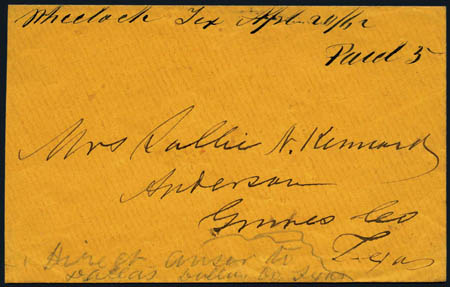 Wheelock Tex Apl 20/62
Paid 5
Mrs Sallie N. Kennard
Anderson
Grimes Co
Texas
Direct anser to
Dallas Dallas Co